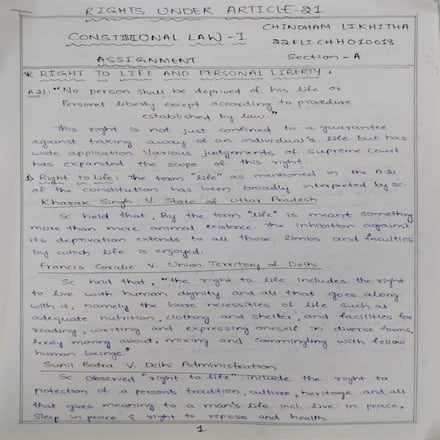 RIGHTS UNDER ARTICLE-21
CHINDHAM LIKHITHA
CONSTITUTIONAL LAW-I
Section-A
ASSIGNMENT
* RIGHT TO LIFE AND PERSONAL LIBERTY:
A.21: "No person shall be deprived of his life or
Personal liberty except according to procedure
established by law."
This right is not just confined to a guarantee
against taking away of an individual's life but has
wide application. Various judgements of Supreme Court
has expanded the scope of this right.
1) Right to Life: The term "Life" as mentioned in the A-21
of the constitution has been broadly interpreted by SC.
Kharak Singh V. State of Uttar Pradesh
SC held that, By the term "life" is meant something
more than mere animal existence. The inhibition against
its deprivation extends to all those limbs and faculties
by which life is enjoyed.
Francis Coralie V. Union Territory of Delhi
SC held that, "the right to life includes the right
to live with human dignity and all that goes along
with it, namely the bare necessities of life such as
adequate nutrition, clothing and shelter, and facilities for
reading, writing and expressing oneself in diverse forms,
freely moving about, mixing and commingling with fellow
human beings."
Sunil Batra V. Delhi Administration
SC observed "right to life" include the right to
protection of a person's tradition, culture, heritage and all
that gives meaning to a man's life incl. live in peace,
Sleep in peace & right to repose and health.
1